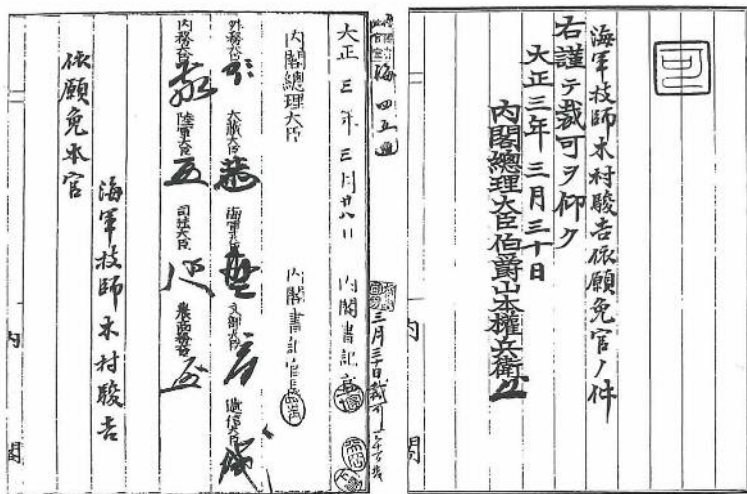 可
海軍技師木村駿吉依願免官ノ件
右謹テ裁可ヲ仰ク
大正三年三月三十日
内閣總理大臣伯爵山本權兵衛
内閣
海四五
三月三十日裁可
大正三年三月廿八日
内閣書記官
内閣總理大臣
内閣書記官長
外務大臣
大藏大臣
海軍大臣
文部大臣
遞信大臣
内務大臣
陸軍大臣
司法大臣
農商務大臣
海軍技師木村駿吉
依願免本官
内閣